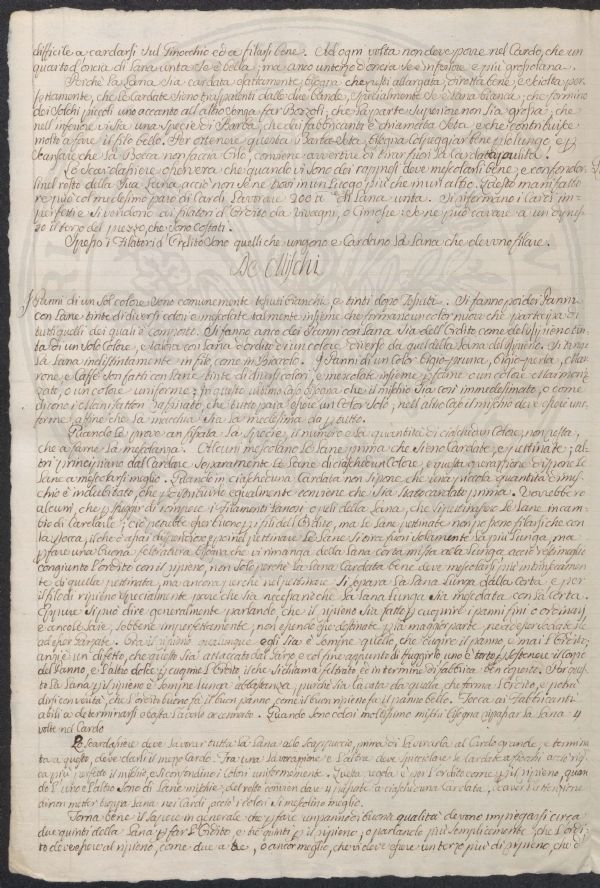 difficile a cardarsi sul Ginocchio ed a filarsi bene. Ad ogni volta non deve porre nel Cardo, che un
quarto d'oncia di Lana unta se è bella; ma anco un terzo d'oncia se è inferiore e più grossolana.
Perchè la Lana sia cardata esattamente, bisogna che resti allargata, diretta bene, e sciolta per-
fettamente, che le Cardate sieno trasparenti dalle due bande, specialmente se è lana bianca; che formino
dei solchi piccoli uno accanto all'altro senza far Bozzoli, che la parte superiore non sia grossa; che
nell'inferiore vi sia una specie di Barba, che dai fabbricanti è chiamata Seta, e che contribuisce
molto a fare il filo bello. Per ottenere questa Barba bisogna
scansare che la Bocca non faccia conviene avvertire di tirar fuori la Cardata pulita.
Lo Scardassiere osserverà che quando vi sono dei deve mescolarli bene, e confonder-
li nel resto della sua Lana, acciò non se ne trovi in un Luogo più che in un altro. Adesso manifatto-
re può col medesimo paro di Cardi Lavorare 200 di Lana unta. Si riformano i Cardi im-
perfetti e si vendono ai filatori d'Ordito da o Cimosse: se ne può cavare a un
il terzo del prezzo, che sono costati.
Spesso i Filatori d'Ordito sono quelli che ungono e Cardano la Lana che devono filare.
De Mischi
I Panni di un sol colore sono comunemente tessuti bianchi e tinti dopo tessuti. Si fanno poi dei Panni
con Lane tinte di diversi colori e mescolate talmente insieme che formano un color nuovo che partecipa di
tutti quelli dei quali è composto. Si fanno anco dei Panni con Lana sia dell'Ordito come del ripieno tin-
ta di un solo Colore, e talora con Lana d'ordito di un colore diverso da quel della Lana del ripieno. Si tinge
la Lana indistintamente in file, come in I Panni di un Color bigio-pruna, bigio-perla, mar-
rone, e Caffè son fatti con Lane tinte di diversi colori, e mescolate insieme p formare o un colore marmoriz-
zato, o un colore uniforme: in questo ultimo caso bisogna che il mischio sia così immedesimato, o come
dicono i Manifattori rassinato, che tutto paia essere un Color solo; nell'altro caso il mischio deve essere uni-
forme, a fine che la macchia sia la medesima da p tutto.
Quando le prove an fissata la specie, il numero e la quantità di ciascheun Colore, non resta,
che a farne la mescolanza. Alcuni mescolano le Lane prima che sieno Cardate, e pettinate; al-
tri principiano dal Cardare separamente le Lane di ciascheun Colore, e questa operazione dispone le
Lane a mescolarsi meglio. Quando in ciascheuna Cardata non si pone che una piccola quantità di mi-
schio è indubitato, che p distribuirlo egualmente conviene che sia stato cardato prima. Vorrebbero
alcuni che p sfuggir di rompere i filamenti lunghi o peli della Lana, che si pettinassero le Lane in cam-
bio di Cardarle; ciò potrebbe esser buono p i fili dell'Ordito, ma le Lane pettinate non possono filarsi che con
la Rocca, il che è assai dispendioso e poi nel pettinare le Lane si tira fuori solamente la più lunga, ma
p fare una buona feltratura bisogna che vi rimanga della Lana corta mista alla Lunga, acciò resti meglio
congiunto l'ordito con il ripieno, non solo perchè la Lana Cardata bene deve mescolarsi più intimamen-
te di quella pettinata, ma ancora perchè nel pettinare si separa la Lana lunga dalla corta e per
il filo di ripieno specialmente pare che sia necessario che la Lana Lunga sia mescolata con la Corta.
Eppure si può dire generalmente parlando, che il ripieno sia fatto p cuoprire i panni fini o ordinarj
e ancole Saie, sebbene imperfettamente, non essendo che destinate p la maggior parte,
Ora il ripieno ovunque egli sia è sempre quello, che cuopre il panno, e mai l'Ordito
anzi è un difetto, che questo sia attaccato dal Garzo e col fine appunto di fuggirlo uno è torto p sostenere il corpo
del Panno, e l'altro dolce p cuoprir l'Ordito, il che si chiama feltrato, ed in termine di fabbrica ben coperto. Per que-
sto la Lana p il ripieno è sempre lunga abbastanza, purchè sia levata da quella che forma l'Ordito, e potrà
dirsi con verità che l'ordito buono fa il buon panno, come il buon ripieno fa il panno bello. Tocca ai Fabbricanti
abili a determinarsi e basta l'averlo accennato. Quando sono colori moltissimo misti bisogna ripassar la Lana 4
volte nel Cardo
Lo Scardassiere deve lavorar tutta la Lana allo prima di lavorarla al Cardo grande, e termina-
ta a questo, deve darli il mezzo Cardo. Tra una lavorazione e l'altra deve le cardate a fiocchi acciò
ca più perfetto il mischio, e si confondino i Colori uniformemente. Questa regola è per l'ordito come p il ripieno, quan-
do l'uno e l'altro sono di Lane mischie; del resto convien dare 4 passate a ciascheuna Cardata, e aver l'attenzione
di non metter troppa Lana nei Cardi, acciò i Colori si mescolino meglio.
Torna bene il sapere in generale che p fare un panno di buona qualità devono impiegarsi circa
due quinti della Lana p far l'Ordito, e trè quinti p il ripieno, o parlando più semplicemente, che l'ordi-
to deve essere al ripieno, come due a tre, o ancor meglio, che vi deve essere un terzo più di ripieno, che d'